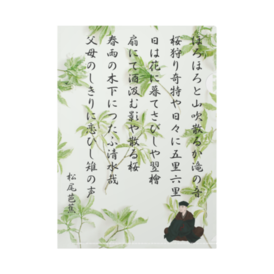 ほろほろと山吹散るか滝の音
桜狩り奇特や日々に五里六里
日は花に暮てさびしや翌檜
扇にて酒汲む影や散る桜
春雨の木下につたふ清水哉
父母のしきりに恋ひし雉の声
松尾芭蕉